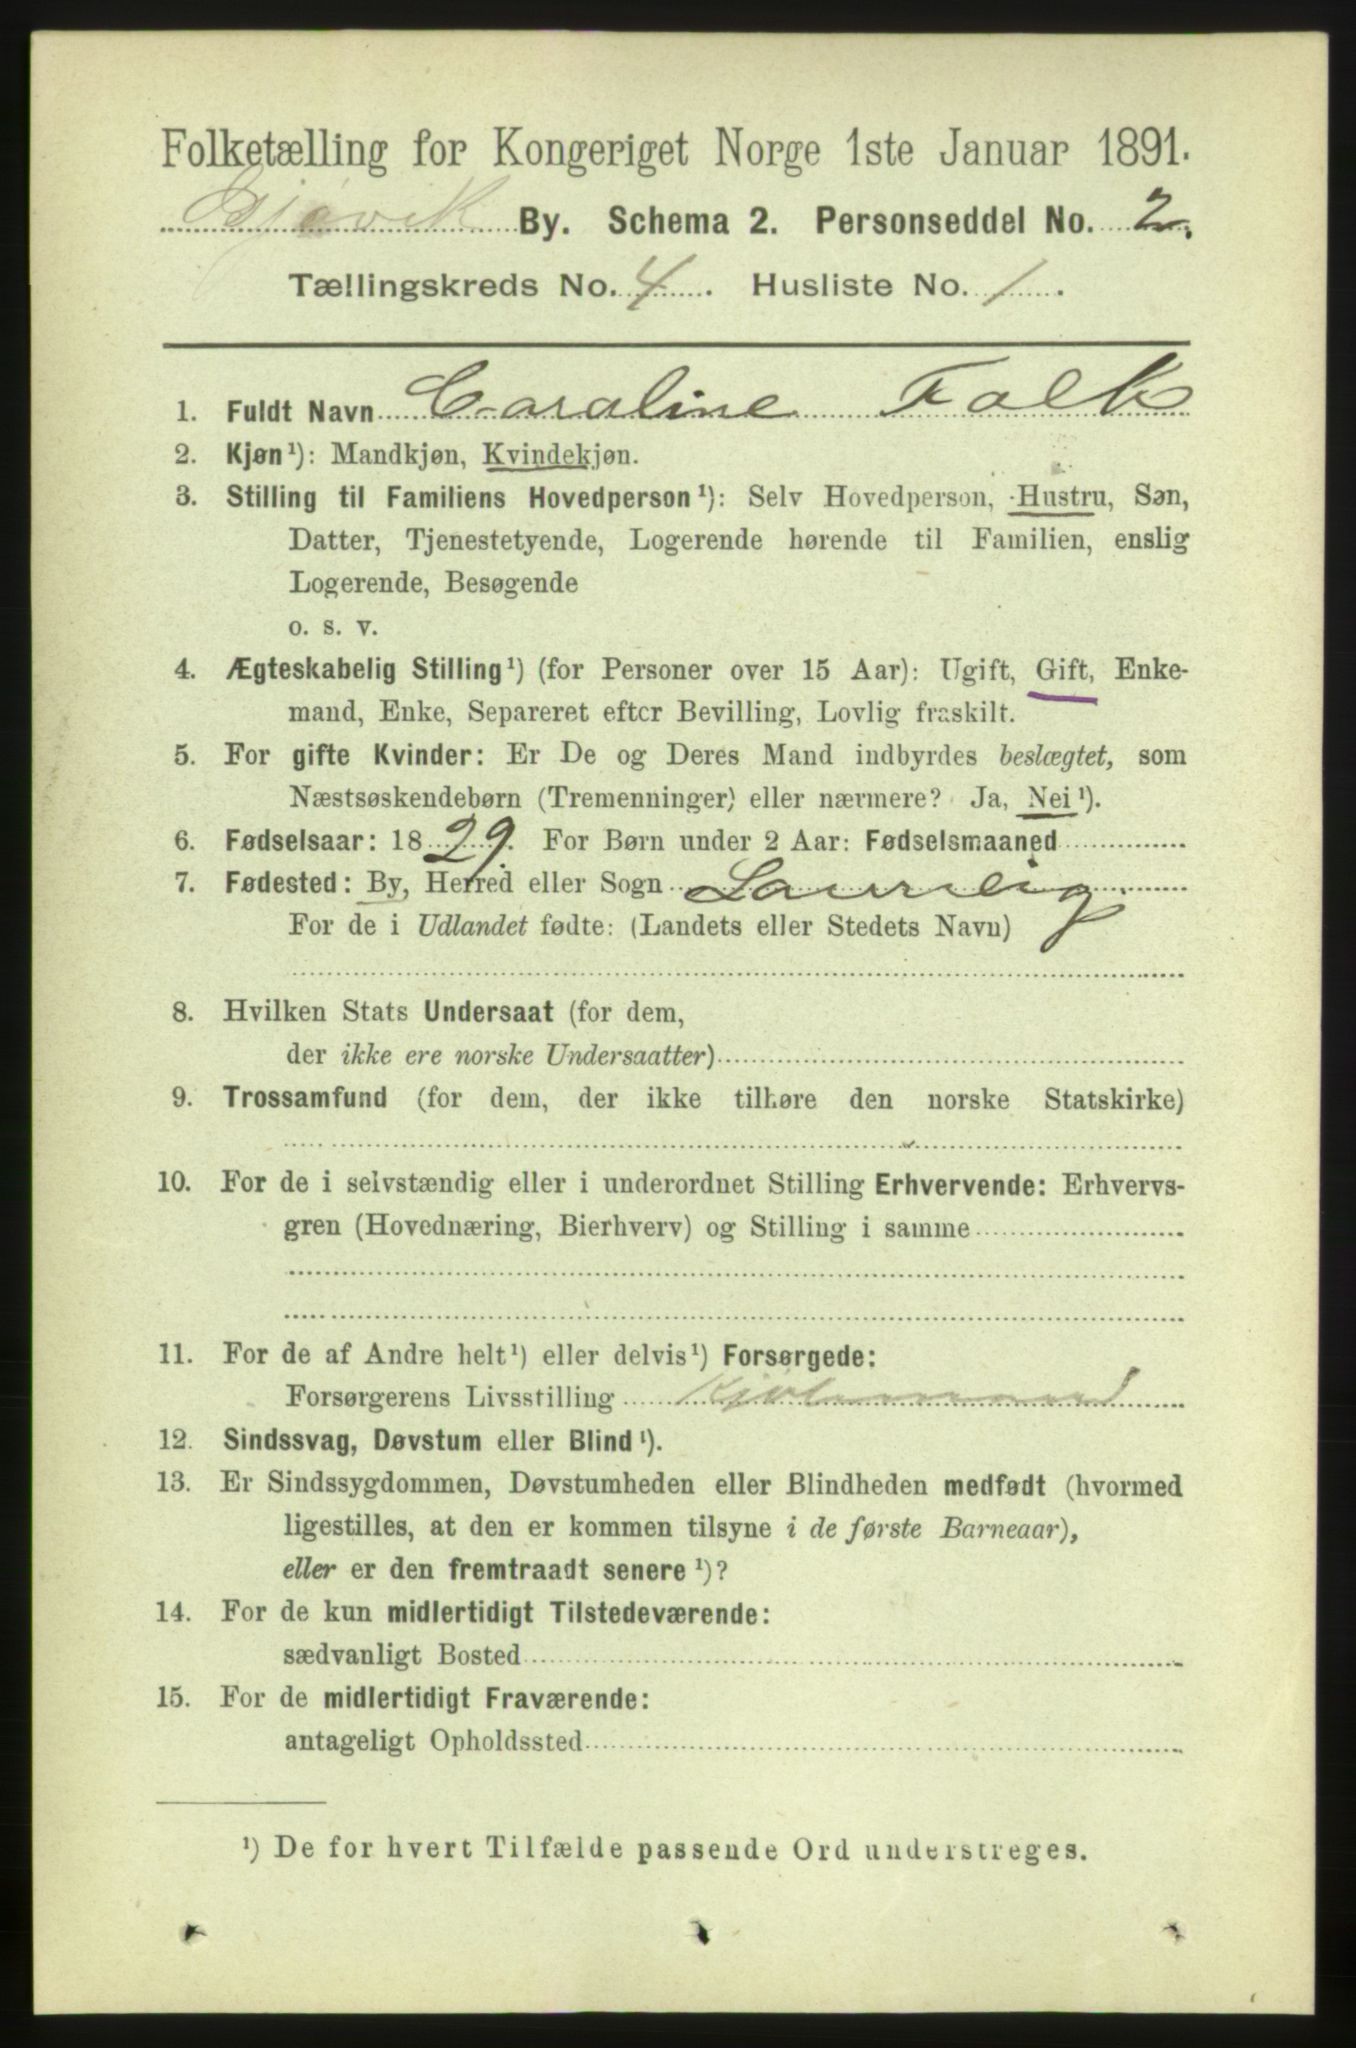 Folketælling for Kongeriget Norge 1ste Januar 1891.
Gjøvik By. Schema 2. Personseddel No. 2.
Tællingskreds No. 4. Husliste No. 1.
1. Fuldt Navn Caroline Falk
2. Kjøn¹): Mandkjøn, Kvindekjøn.
3. Stilling til Familiens Hovedperson¹): Selv Hovedperson, Hustru, Søn,
Datter, Tjenestetyende, Logerende hørende til Familien, enslig
Logerende, Besøgende
o. s. v.
4. Ægteskabelig Stilling¹) (for Personer over 15 Aar): Ugift, Gift, Enke-
mand, Enke, Separeret efter Bevilling, Lovlig fraskilt.
5. For gifte Kvinder: Er De og Deres Mand indbyrdes beslægtet, som
Næstsøskendebørn (Tremenninger) eller nærmere? Ja, Nei¹).
6. Fødselsaar: 1829. For Børn under 2 Aar: Fødselsmaaned
7. Fødested: By, Herred eller Sogn Laurvig
For de i Udlandet fødte: (Landets eller Stedets Navn)
8. Hvilken Stats Undersaat (for dem,
der ikke ere norske Undersaatter)
9. Trossamfund (for dem, der ikke tilhøre den norske Statskirke)
10. For de i selvstændig eller i underordnet Stilling Erhvervende: Erhvervs-
gren (Hovednæring, Bierhverv) og Stilling i samme
11. For de af Andre helt¹) eller delvis¹) Forsørgede:
Forsørgerens Livsstilling Kjøbmand
12. Sindssvag, Døvstum eller Blind¹).
13. Er Sindssygdommen, Døvstumheden eller Blindheden medfødt (hvormed
ligestilles, at den er kommen tilsyne i de første Barneaar),
eller er den fremtraadt senere¹)?
14. For de kun midlertidigt Tilstedeværende:
sædvanligt Bosted
15. For de midlertidigt Fraværende:
antageligt Opholdssted
¹) De for hvert Tilfælde passende Ord understreges.